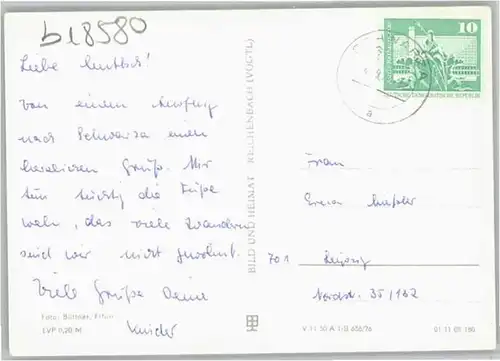 b18580
Liebe
Von einem Ausflug
nach Schwarza einen
herzlichen Gruß. Mir
tun tüchtig die Füße
weh, das viele Wandern
sind wir nicht gewohnt.
Viele Grüße Deine
Kinder
Foto: Büttner, Erfurt
EVP 0,20 M
BILD UND HEIMAT REICHENBACH (VOGTL)
10
DEUTSCHE DEMOKRATISCHE REPUBLIK
a
Frau
Erna
701 Leipzig
Nordstr. 35/162
V 11 50 A 1/B 656/76
01 11 01 160